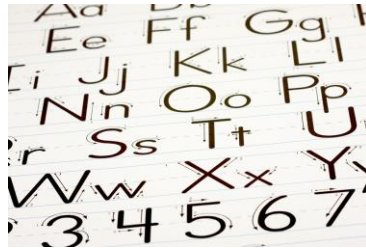 Aa Bb
Ee Ff Gg
I i Jj Kk Ll
Nn Oo Pp
r Ss Tt U
Ww Xx Yy
3 4 5 6 7